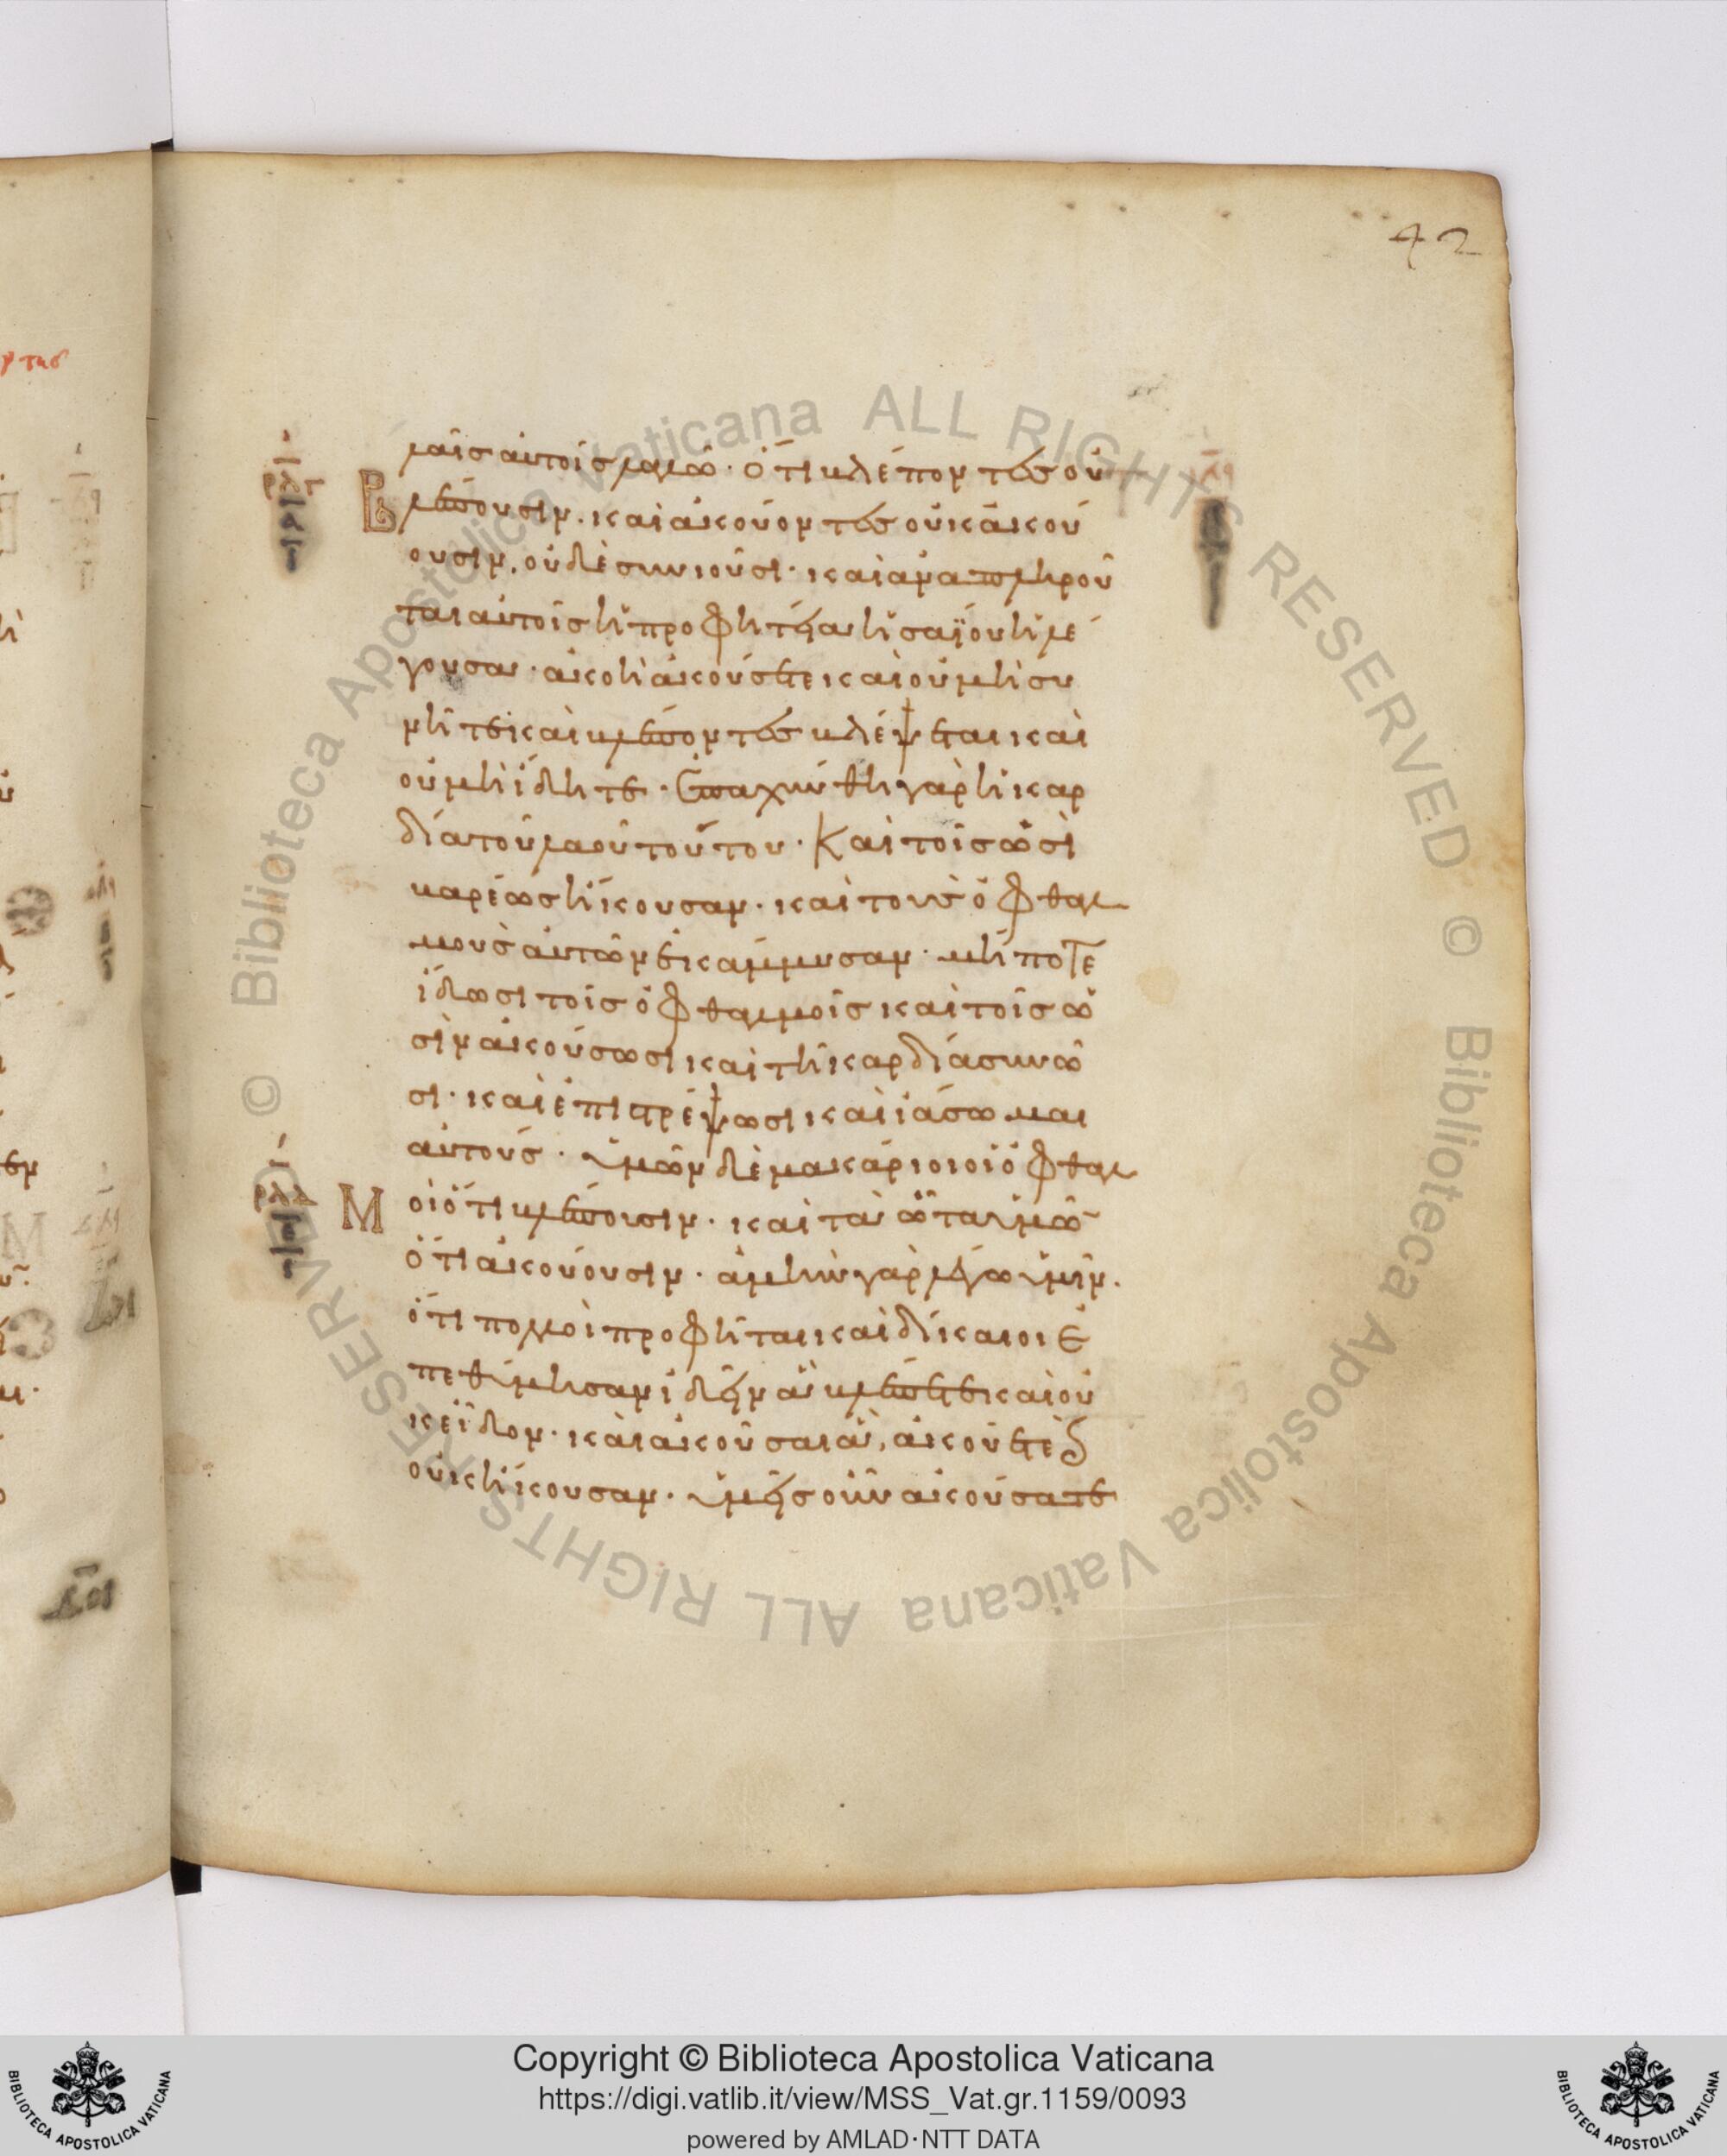 42
λαῖς αὐτοῖς λαλῶ· ὅτι βλέποντες οὐ
βλέπουσιν· καὶ ἀκούοντες οὐκ ἀκού
ουσιν, οὐδὲ συνιοῦσι· καὶ ἀναπληροῦ
ται αὐτοῖς ἡ προφητεία ἡσαΐου ἡ λέ
γουσα· ἀκοῆ ἀκούσετε καὶ οὐ μὴ συ
νῆτε καὶ βλέποντες βλέψεται καὶ
οὐ μὴ ἴδητε· ἐπαχύνθη γὰρ ἡ καρ
δία τοῦ λαοῦ τούτου· Καὶ τοῖς ὠσὶ
βαρέως ἤκουσαν· καὶ τοὺς ὀφθαλ
μοὺς αὐτῶν ἐκάμμυσαν· μήποτε
ἴδωσι τοῖς ὀφθαλμοῖς καὶ τοῖς ὠ
σὶν ἀκούσωσι καὶ τῆ καρδία συνῶ
σι· καὶ ἐπιστρέψωσι καὶ ἰάσωμαι
αὐτούς· ὑμῶν δὲ μακάριοι οἱ ὀφθαλ
Μ οὶ ὅτι βλέπουσιν· καὶ τὰ ὦτα ὑμῶ
ὅτι ἀκούουσιν· ἀμὴν γὰρ λέγω ὑμῖν.
ὅτι πολλοὶ προφῆται καὶ δίκαιοι ἐ
πεθύμησαν ἰδεῖν ἃ βλέπετε καὶ οὐ
κ εἶδον· καὶ ἀκοῦσαι ἃ, ἀκούετε ϗ
οὐκ ἤκουσαν· ὑμεῖς οὖν ἀκούσατε
Copyright © Biblioteca Apostolica Vaticana
https://digi.vatlib.it/view/MSS_Vat.gr.1159/0093
powered by AMLAD·NTT DATA
BIBLIOTECA APOSTOLICA VATICANA
BIBLIOTECA APOSTOLICA VATICANA
© Biblioteca Apostolica Vaticana ALL RIGHTS RESERVED
© Biblioteca Apostolica Vaticana ALL RIGHTS RESERVED